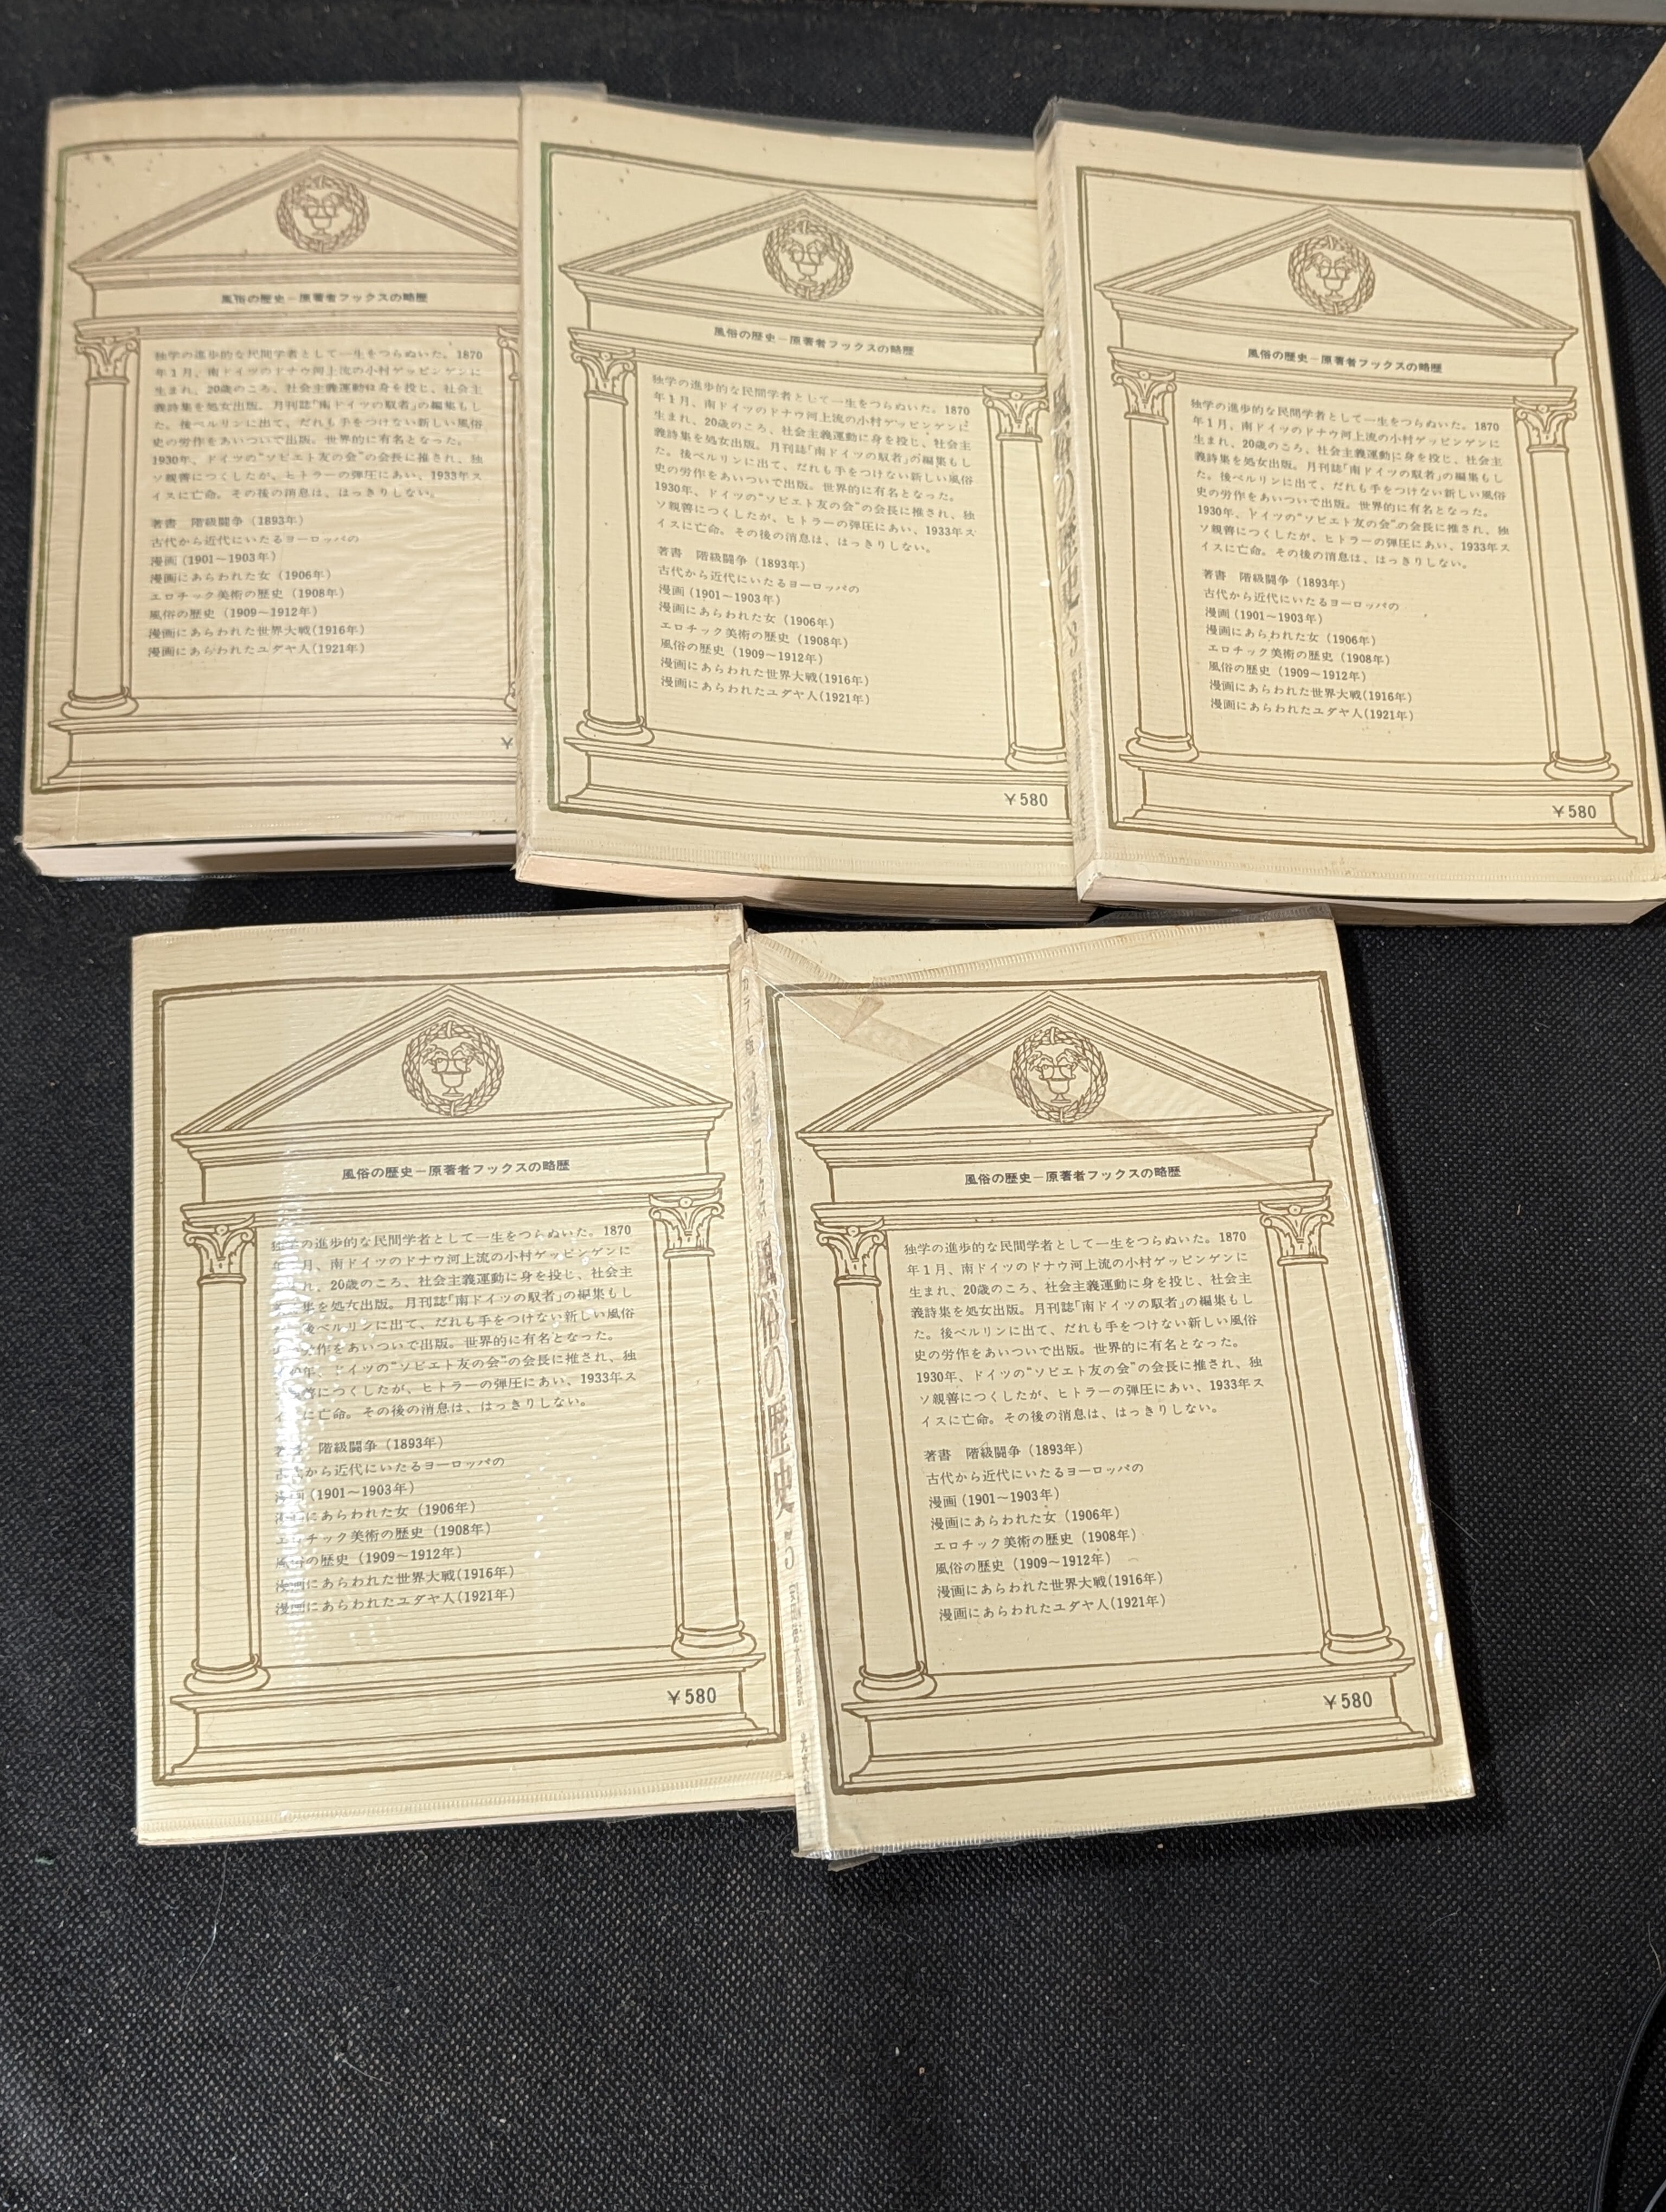 風俗の歴史－原著者フックスの略歴
独学の進歩的な民間学者として一生をつらぬいた。1870
年1月、南ドイツのドナウ河上流の小村ゲッピンゲンに
生まれ、20歳のころ、社会主義運動に身を投じ、社会主
義詩集を処女出版。月刊誌「南ドイツの馭者」の編集もし
た。後ベルリンに出て、だれも手をつけない新しい風俗
史の労作をあいついで出版。世界的に有名となった。
1930年、ドイツの“ソビエト友の会”の会長に推され、独
ソ親善につくしたが、ヒトラーの弾圧にあい、1933年ス
イスに亡命。その後の消息は、はっきりしない。
著書　階級闘争（1893年）
古代から近代にいたるヨーロッパの
漫画（1901～1903年）
漫画にあらわれた女（1906年）
エロチック美術の歴史（1908年）
風俗の歴史（1909～1912年）
漫画にあらわれた世界大戦(1916年)
漫画にあらわれたユダヤ人(1921年)
￥
風俗の歴史－原著者フックスの略歴
独学の進歩的な民間学者として一生をつらぬいた。1870
年1月、南ドイツのドナウ河上流の小村ゲッピンゲンに
生まれ、20歳のころ、社会主義運動に身を投じ、社会主
義詩集を処女出版。月刊誌「南ドイツの馭者」の編集もし
た。後ベルリンに出て、だれも手をつけない新しい風俗
史の労作をあいついで出版。世界的に有名となった。
1930年、ドイツの“ソビエト友の会”の会長に推され、独
ソ親善につくしたが、ヒトラーの弾圧にあい、1933年ス
イスに亡命。その後の消息は、はっきりしない。
著書　階級闘争（1893年）
古代から近代にいたるヨーロッパの
漫画（1901～1903年）
漫画にあらわれた女（1906年）
エロチック美術の歴史（1908年）
風俗の歴史（1909～1912年）
漫画にあらわれた世界大戦(1916年)
漫画にあらわれたユダヤ人(1921年)
￥580
の歴史
風俗の歴史－原著者フックスの略歴
独学の進歩的な民間学者として一生をつらぬいた。1870
年1月、南ドイツのドナウ河上流の小村ゲッピンゲンに
生まれ、20歳のころ、社会主義運動に身を投じ、社会主
義詩集を処女出版。月刊誌「南ドイツの馭者」の編集もし
た。後ベルリンに出て、だれも手をつけない新しい風俗
史の労作をあいついで出版。世界的に有名となった。
1930年、ドイツの“ソビエト友の会”の会長に推され、独
ソ親善につくしたが、ヒトラーの弾圧にあい、1933年ス
イスに亡命。その後の消息は、はっきりしない。
著書　階級闘争（1893年）
古代から近代にいたるヨーロッパの
漫画（1901～1903年）
漫画にあらわれた女（1906年）
エロチック美術の歴史（1908年）
風俗の歴史（1909～1912年）
漫画にあらわれた世界大戦(1916年)
漫画にあらわれたユダヤ人(1921年)
￥580
風俗の歴史－原著者フックスの略歴
独学の進歩的な民間学者として一生をつらぬいた。1870
年1月、南ドイツのドナウ河上流の小村ゲッピンゲンに
まれ、20歳のころ、社会主義運動に身を投じ、社会主
集を処女出版。月刊誌「南ドイツの馭者」の編集もし
後ベルリンに出て、だれも手をつけない新しい風俗
労作をあいついで出版。世界的に有名となった。
年、ドイツの“ソビエト友の会”の会長に推され、独
善につくしたが、ヒトラーの弾圧にあい、1933年ス
イスに亡命。その後の消息は、はっきりしない。
階級闘争（1893年）
古代から近代にいたるヨーロッパの
漫画（1901～1903年）
漫画にあらわれた女（1906年）
エロチック美術の歴史（1908年）
風俗の歴史（1909～1912年）
漫画にあらわれた世界大戦(1916年)
漫画にあらわれたユダヤ人(1921年)
￥580
カラー版
風俗の歴史
風俗の歴史－原著者フックスの略歴
独学の進歩的な民間学者として一生をつらぬいた。1870
年1月、南ドイツのドナウ河上流の小村ゲッピンゲンに
生まれ、20歳のころ、社会主義運動に身を投じ、社会主
義詩集を処女出版。月刊誌「南ドイツの馭者」の編集もし
た。後ベルリンに出て、だれも手をつけない新しい風俗
史の労作をあいついで出版。世界的に有名となった。
1930年、ドイツの“ソビエト友の会”の会長に推され、独
ソ親善につくしたが、ヒトラーの弾圧にあい、1933年ス
イスに亡命。その後の消息は、はっきりしない。
著書　階級闘争（1893年）
古代から近代にいたるヨーロッパの
漫画（1901～1903年）
漫画にあらわれた女（1906年）
エロチック美術の歴史（1908年）
風俗の歴史（1909～1912年）
漫画にあらわれた世界大戦(1916年)
漫画にあらわれたユダヤ人(1921年)
￥580